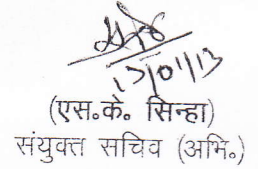 17/01/13
(एस.के. सिन्हा)
संयुक्त सचिव (अभि.)